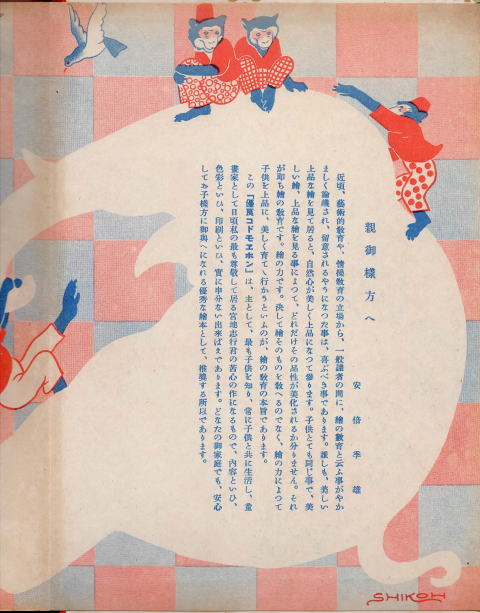 親御樣方へ
安倍季雄
近頃、藝術的敎育や、情操敎育の立場から、一般識者の間に、繪の敎育と云ふ事がやか
ましく論議され、留意されるやうになつた事は、喜ぶべき事であります。誰しも、美しい
上品な繪を見て居ると、自然心が美しく上品になつて參ります。子供とても同じ事で、美
しい繪、上品な繪を見る事によつて、どれだけその品性が美化されるか分りません。それ
が卽ち繪の敎育です。繪の力です。決して繪そのものを敎へるのでなく、繪の力によつて
子供を上品に、美しく育てゝ行かうといふのが、繪の敎育の本旨であります。
この『優良コドモヱホン』は、主として、最も子供を知り、常に子供と共に生活し、童
畫家として日頃私の最も尊敬して居る宮地志行君の苦心の作になるもので、內容といひ、
色彩といひ、印刷といひ、實に申分ない出來ばえであります。どなたの御家庭でも、安心
してお子樣方に御與へになれる優秀な繪本として、推奬する所以であります。
SHIKOH